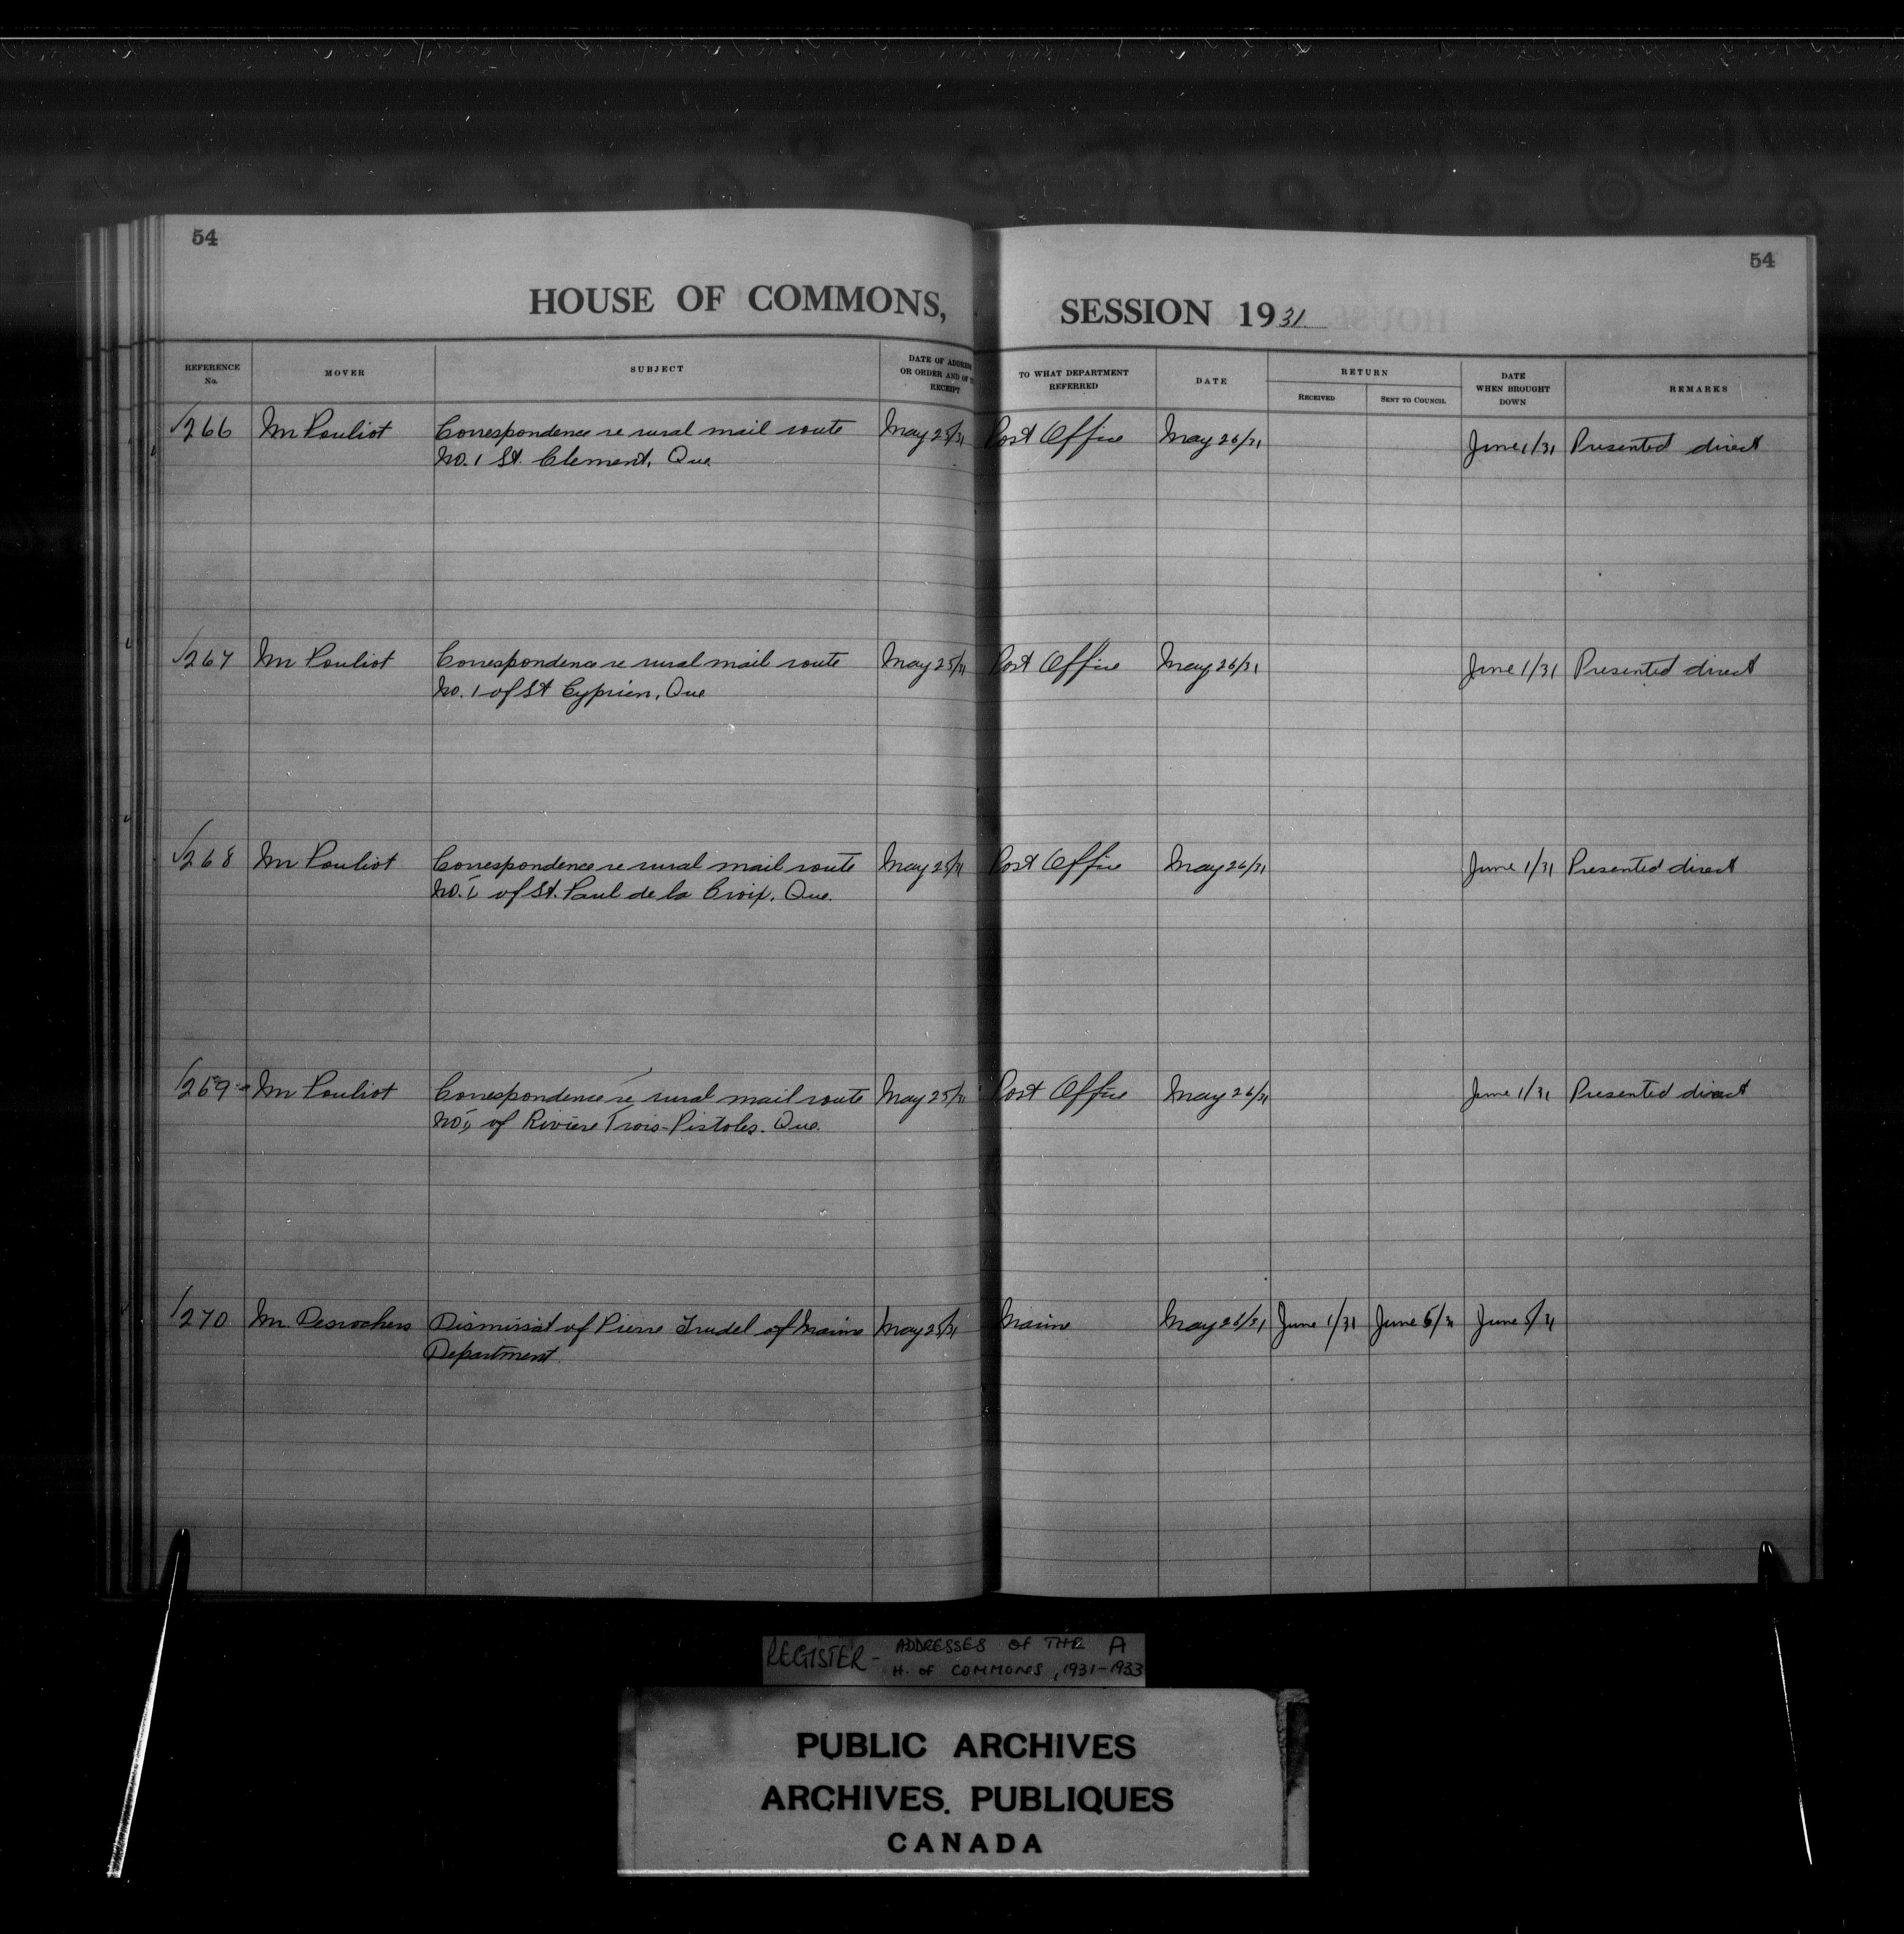 54
54
HOUSE OF COMMONS, SESSION 1931
REFERENCE No. MOVER SUBJECT DATE OF ADDRESS OR ORDER AND OF RECEIPT TO WHAT DEPARTMENT REFERRED DATE RETURN RECEIVED SENT TO COUNCIL DATE WHEN BROUGHT DOWN REMARKS
266 Mr Pouliot Correspondence re rural mail route May 25/31 Post Office May 26/31 June 1/31 Presented direct
No. 1 St. Clement, Que.
267 Mr Pouliot Correspondence re rural mail route May 25/31 Post Office May 26/31 June 1/31 Presented direct
No. 1 of St Cyprien, Que
268 Mr Pouliot Correspondence re rural mail route May 25/31 Post Office May 26/31 June 1/31 Presented direct
No. 1 of St. Paul de la Croix, Que.
269 Mr Pouliot Correspondence re rural mail route May 25/31 Post Office May 26/31 June 1/31 Presented direct
No. of Riviere Trois-Pistoles. Que.
270 Mr. Desrochers Dismissal of Pierre Trudel of Marine May 25/31 Marine May 26/31 June 1/31 June 5/31 June 5/31
Department.
REGISTER - ADDRESSES OF THE A
H. OF COMMONS, 1931-1933
PUBLIC ARCHIVES
ARCHIVES PUBLIQUES
CANADA